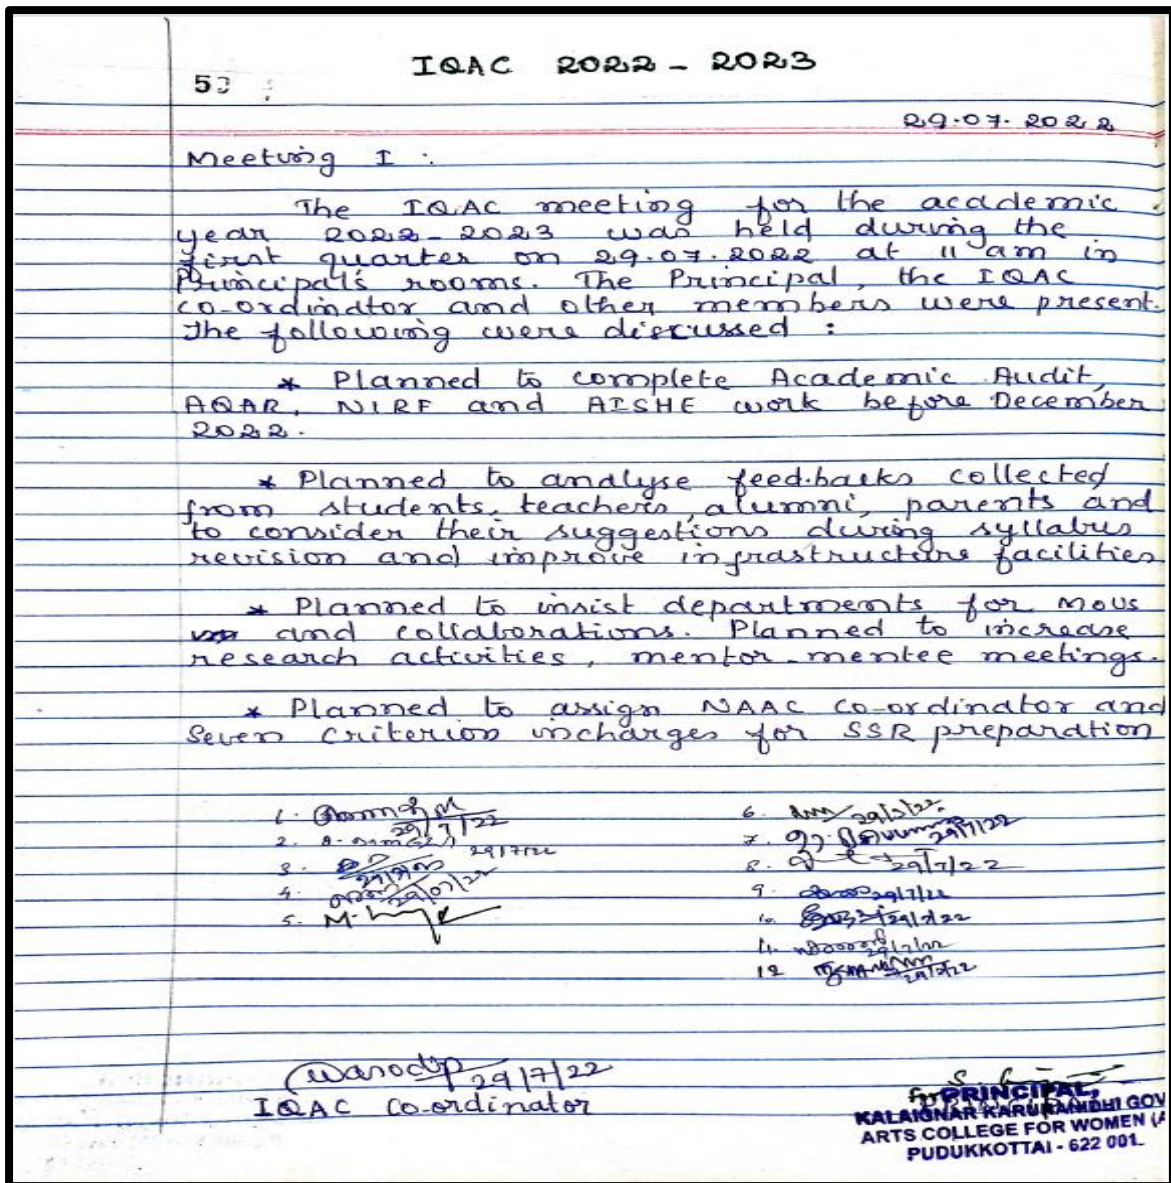 IQAC 2022 - 2023
29.07.2022
Meeting I :
The IQAC meeting for the academic
year 2022-2023 was held during the
first quarter on 29.07.2022 at 11 am in
Principal's rooms. The Principal, the IQAC
co-ordinator and other members were present.
The following were discussed :
* Planned to complete Academic Audit,
AQAR, NIRF and AISHE work before December
2022.
* Planned to analyse feed.backs collected
from students, teachers, alumni, parents and
to consider their suggestions during syllabus
revision and improve infrastructure facilities
* Planned to insist departments for MOUS
and collaborations. Planned to increase
research activities, mentor-mentee meetings.
* Planned to assign NAAC co-ordinator and
Seven Criterion incharges for SSR preparation
1. 29/7/22
2. 29/7/22
3.
4. 29/07/22
5. M.
6. 29/7/22
7. 29/7/22
8. 29/7/22
9. 29/7/22
10. 29/7/22
11. 29/7/22
12 29/7/22
29/7/22
IQAC Co-ordinator
for PRINCIPAL,
KALAIGNAR KARUNANIDHI GOV
ARTS COLLEGE FOR WOMEN (A
PUDUKKOTTAI - 622 001.